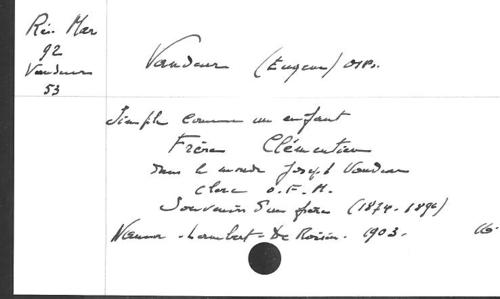 Rés. Mar
92
Vandeur
53
Vandeur (Eugène) OSB.
Simple comme un enfant
Frère Clémentien
dans le monde Joseph Vandeur
clerc O.F.M.
Souvenirs d'un frère (1874-1896)
Namur - Lambert-De Roisin. 1903.
16.